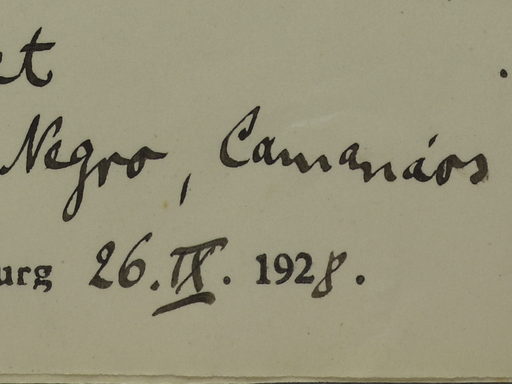 et
Negro, Camanáos
urg 26.IX. 1928.